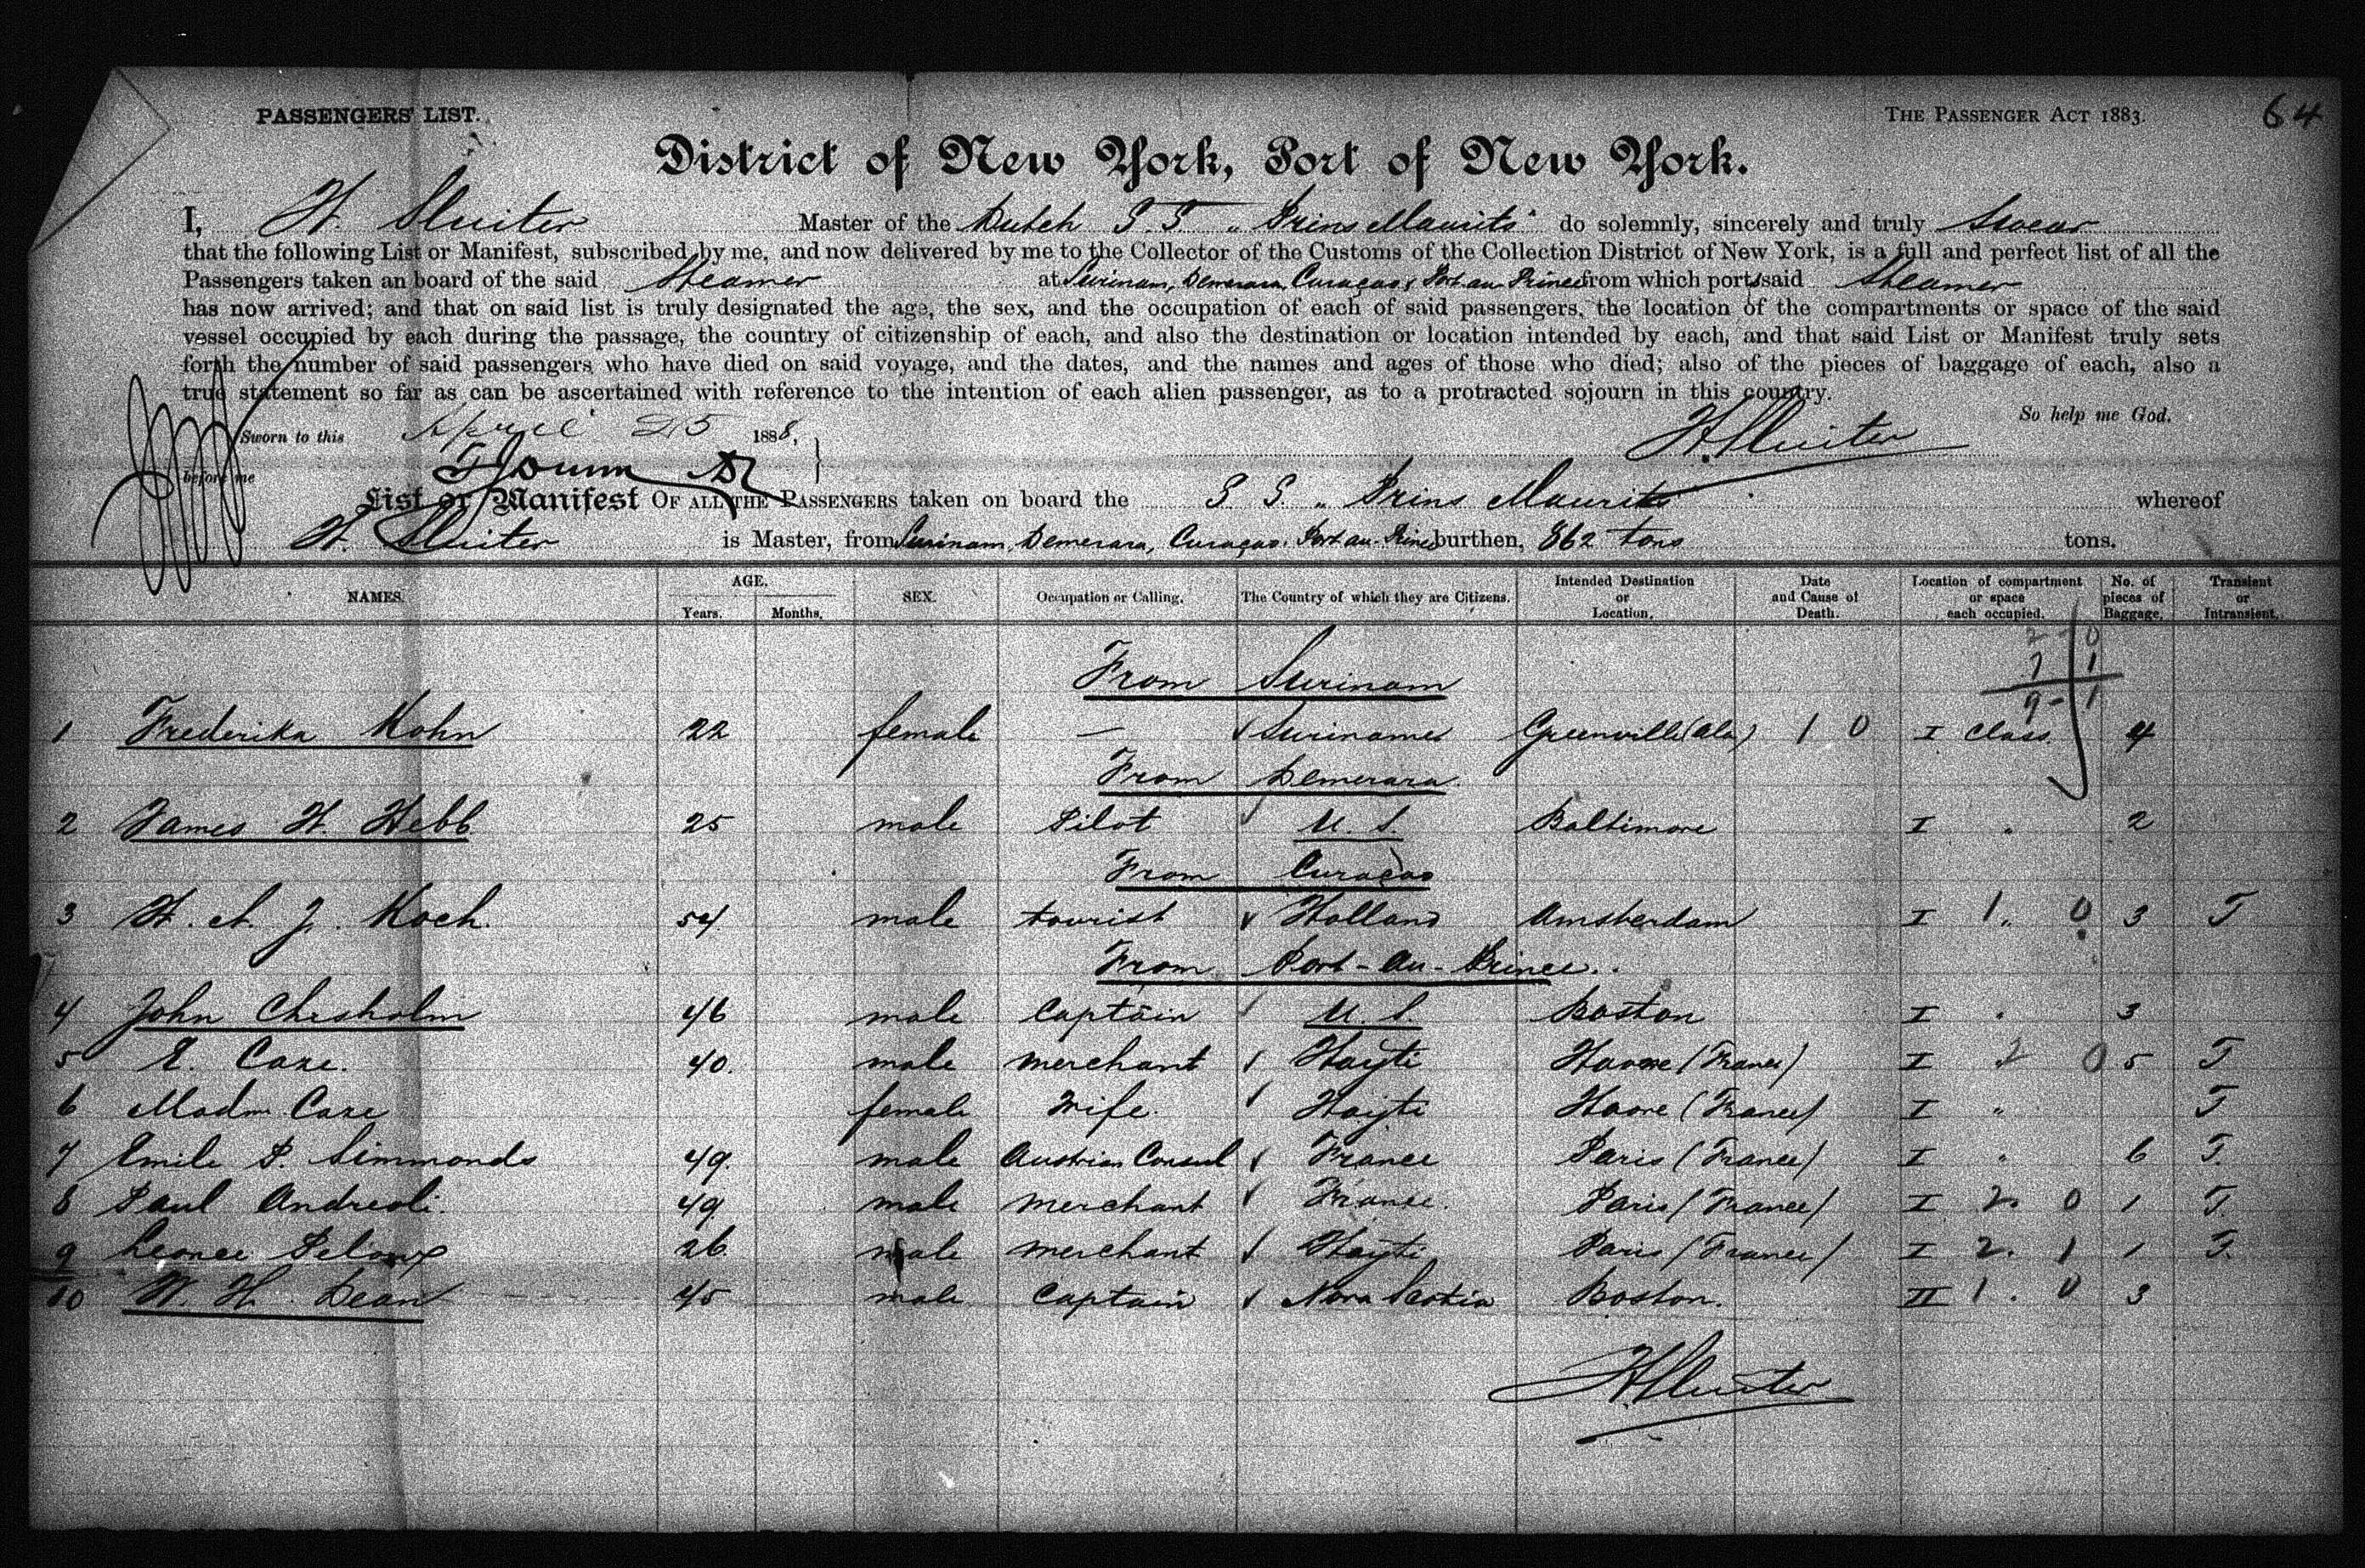 PASSENGERS' LIST.
THE PASSENGER ACT 1883.
64
District of New York, Port of New York.
I, H. Sluiter Master of the Dutch S.S. „Prins Maurits" do solemnly, sincerely and truly Swear
that the following List or Manifest, subscribed by me, and now delivered by me to the Collector of the Customs of the Collection District of New York, is a full and perfect list of all the
Passengers taken an board of the said Steamer at Surinam, Demerara, Curaçao & Port au Prince from which port/s said Steamer
has now arrived; and that on said list is truly designated the age, the sex, and the occupation of each of said passengers, the location of the compartments or space of the said
vessel occupied by each during the passage, the country of citizenship of each, and also the destination or location intended by each, and that said List or Manifest truly sets
forth the number of said passengers who have died on said voyage, and the dates, and the names and ages of those who died; also of the pieces of baggage of each, also a
true statement so far as can be ascertained with reference to the intention of each alien passenger, as to a protracted sojourn in this country.
So help me God.
Sworn to this April 25 1888, H. Sluiter
before me
List or Manifest OF ALL THE PASSENGERS taken on board the S S. „ Prins Maurits whereof
H. Sluiter is Master, from Surinam, Demerara, Curaçao. Port au-Prince burthen, 862 tons tons.
NAMES. AGE. Years. Months. SEX. Occupation or Calling. The Country of which they are Citizens. Intended Destination or Location. Date and Cause of Death. Location of compartment or space each occupied. No. of pieces of Baggage. Transient or Intransient.
2 - 0
7 1
9 - 1
From Surinam
1 Frederika Kohn 22 female — Suriname Greenville (Ala) 1 0 I Class. 4
From Demerara
2 James H. Hebb 25 male Pilot U. S. Baltimore I " 2
From Curaçao
3 H. A. J. Koch. 54 male tourist Holland Amsterdam I 1 " 0 3 T
From Port-au-Prince.
4 John Chesholm 46 male Captain U. S Boston I " 3
5 E. Caze. 40. male merchant Hayti Havre (France) I " 2 0 5 T
6 Madm. Caze female Wife. Hayti Havre (France) I " T
7 Emile P. Simmonds 49. male Austrian Consul France Paris (France) I " 6 T.
8 Paul Andreoli. 49. male merchant France. Paris (France) I 2. 0 1 T.
9 Leonce 26 male merchant Hayti Paris (France) I 2. 1 1 T.
10 W. H. Dean 45 male Captain Nova Scotia Boston. II 1. 0 3
H. Sluiter